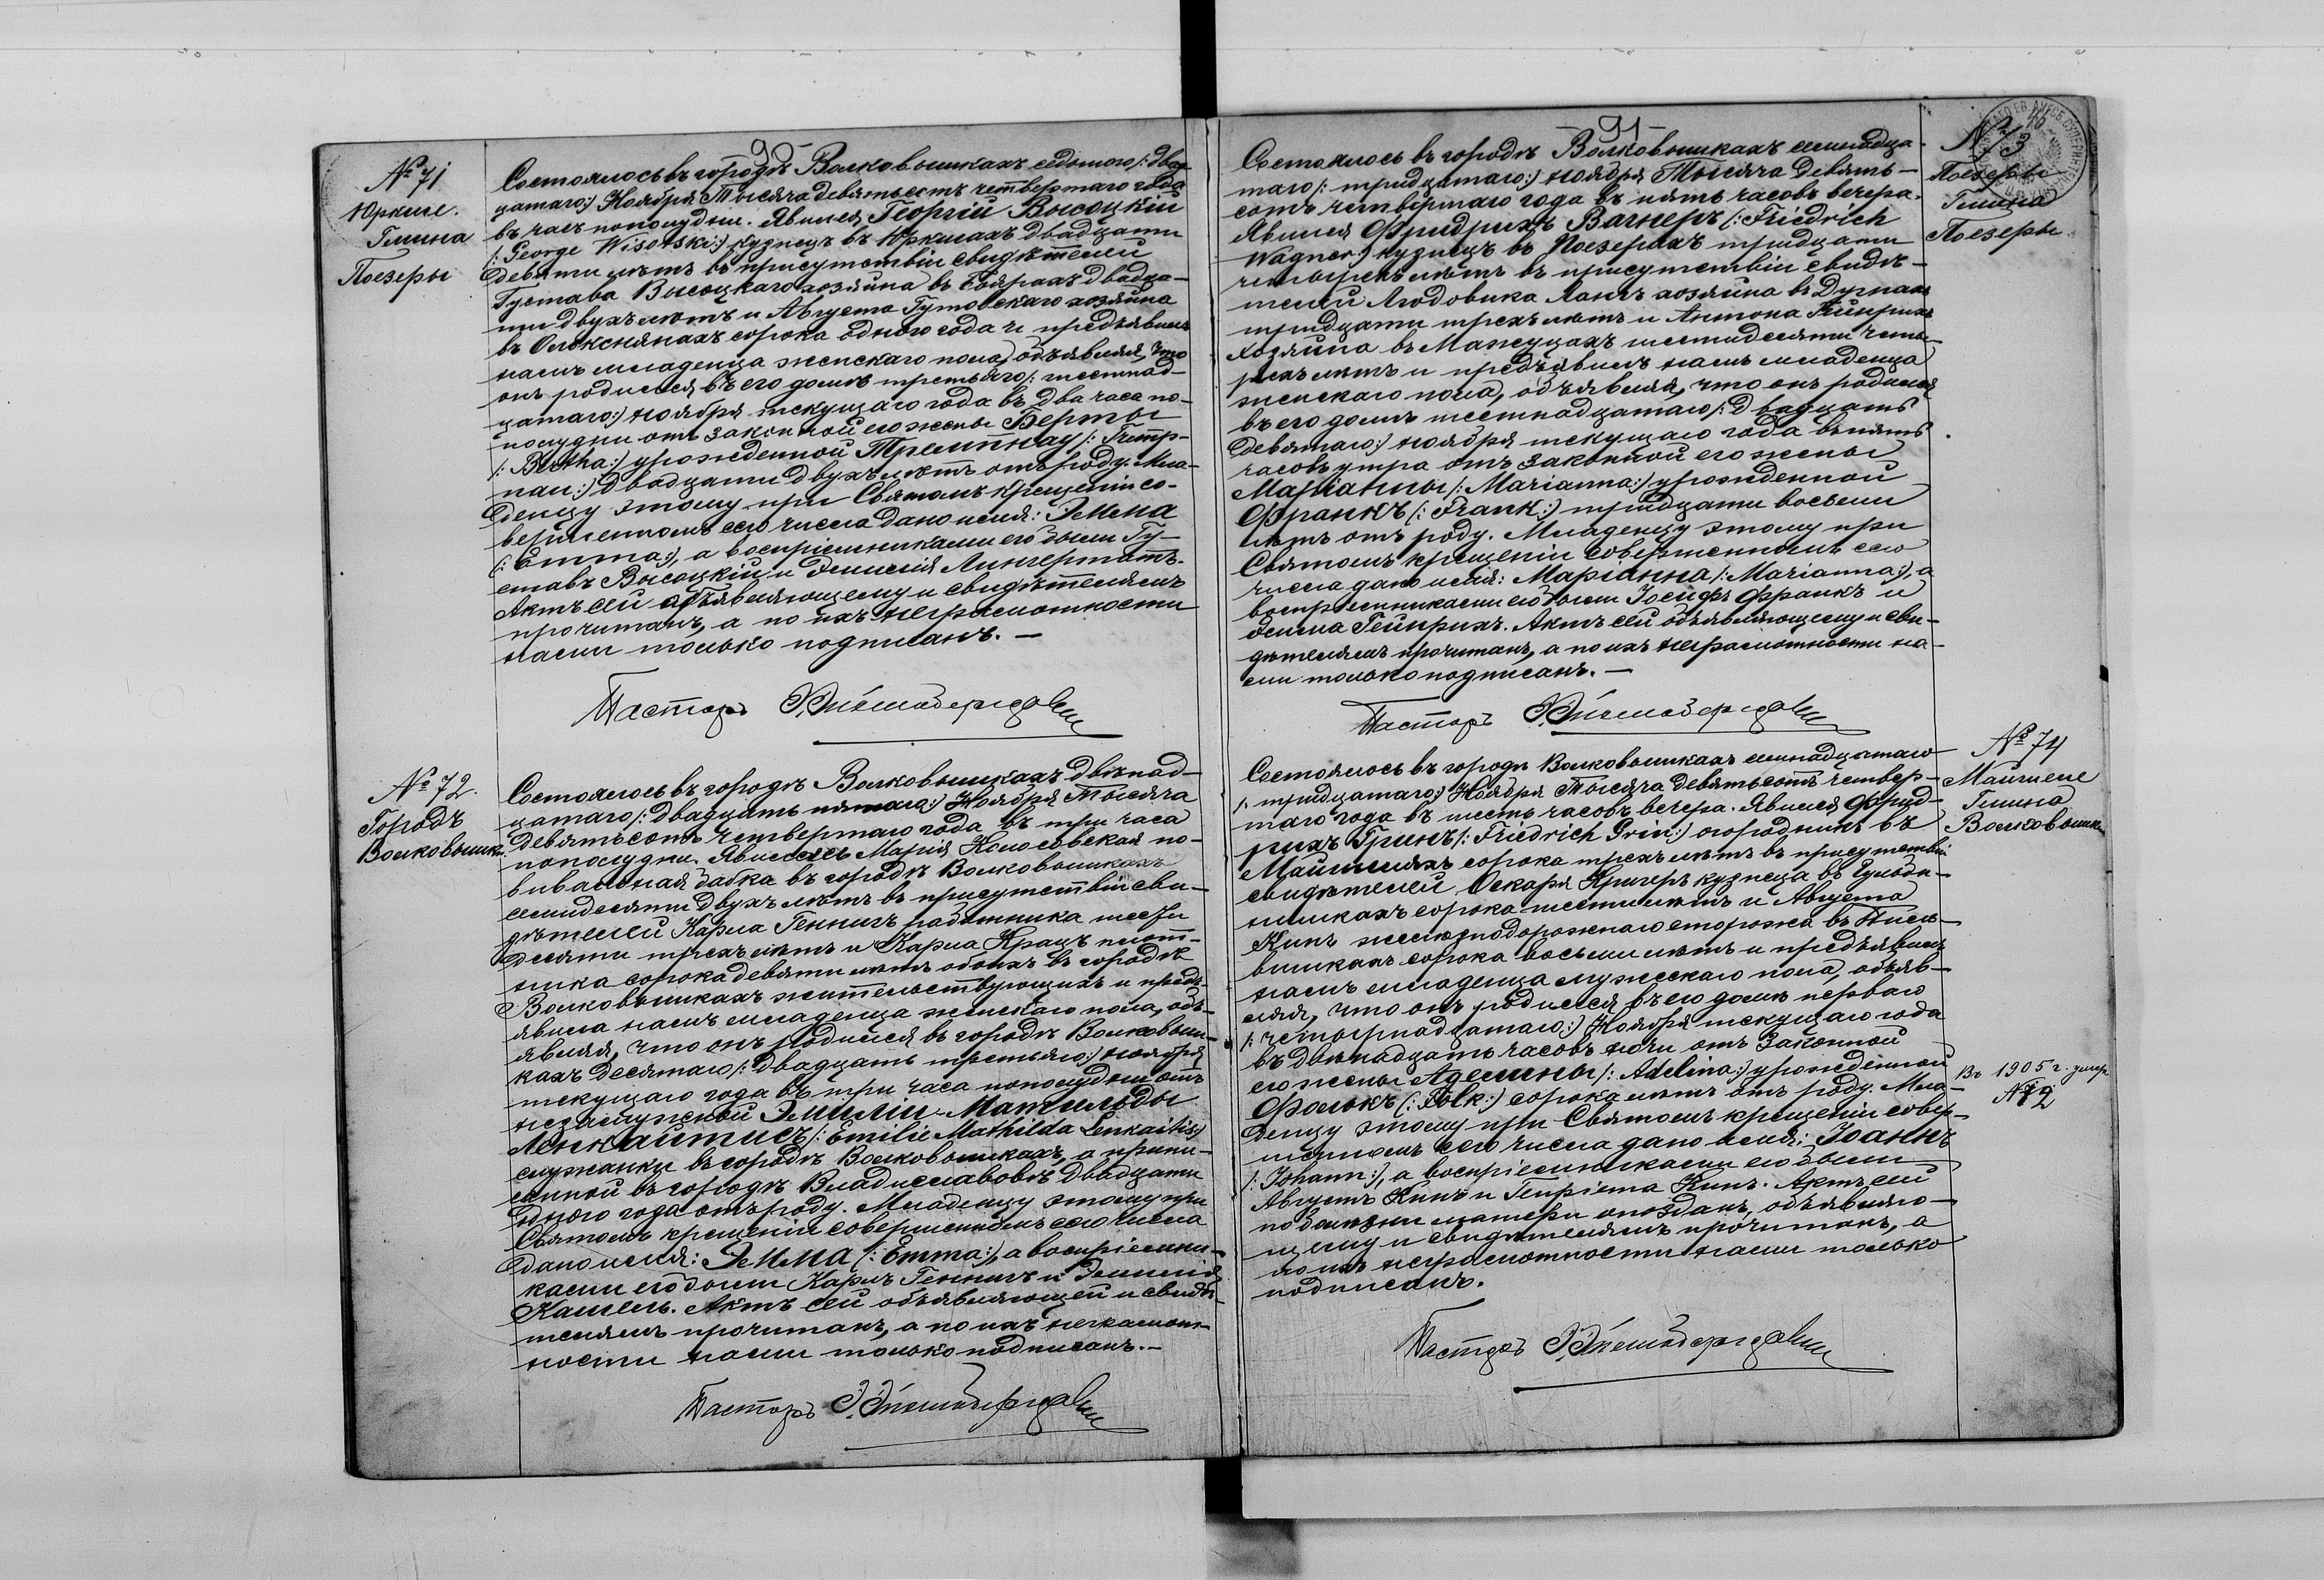 90
№ 71
Юркше.
Гмина
Поезеры
Состоялось въ городѣ Волковышкахъ седьмого /: двад-
цатаго :/ Ноября Тысяча девятьсотъ четвертаго года
въ часъ пополудни. Явился Георгій Высоцкій
/: George Wisotski :/ кузнецъ въ Юркшахъ двадцати
девяти лѣтъ въ присутствіи свидѣтелей
Густава Высоцкаго хозяина въ Боярахъ двадца-
ти двухъ лѣтъ и Августа Гутовскаго хозяина
въ Олькснянахъ сорока одного года и предъявилъ
намъ младенца женскаго пола, объявляя, что
онъ родился въ его домѣ третьяго /: шестнад-
цатаго :/ ноября текущаго года въ два часа по-
полудни отъ законной его жены Берты
/: Bertha :/ урожденной Тремпнау /: Tremp-
nau :/ двадцати двухъ лѣтъ отъ роду. Мла-
денцу этому при Святомъ крещеніи со-
вершенномъ сего числа дано имя: Эмма
/: Emma :/, а воспріемниками его были Гу-
ставъ Высоцкій и Эмилія Лингертатъ.
Актъ сей объявляющему и свидѣтелямъ
прочитанъ, а по ихъ неграмотности
нами только подписанъ. —
Пасторъ
№ 72.
Городъ
Волковышки.
Состоялось въ городѣ Волковышкахъ двѣнад-
цатаго /: двадцать пятаго :/ Ноября Тысяча
девятьсотъ четвертаго года въ три часа
пополудни. Явилась Марія Колосовская по-
вивальная бабка въ городѣ Волковышкахъ
семидесяти двухъ лѣтъ въ присутствіи сви-
дѣтелей Карла Геннигъ работника шести-
десяти трехъ лѣтъ и Карла Крацъ плот-
ника сорока девяти лѣтъ обоихъ въ городѣ
Волковышкахъ жительствующихъ и предъ-
явила намъ младенца женскаго пола, объ-
являя, что онъ родился въ городѣ Волковыш-
кахъ десятаго /: двадцать третьяго :/ ноября
текущаго года въ три часа пополудни отъ
незамужной Эмиліи Матильды
Ленкайтисъ /: Emilie Mathilda Lenkaitis :/
служанки въ городѣ Волковышкахъ, а припи-
санной въ городѣ Владиславовѣ двадцати
одного года отъ роду. Младенцу этому при
Святомъ крещеніи совершенномъ сего числа
дано имя: Эмма /: Emma :/, а воспріемни-
ками его были Карлъ Геннигъ и Эмилія
Кашель. Актъ сей объявляющей и свидѣ-
телямъ прочитанъ, а по ихъ неграмот-
ности нами только подписанъ. —
Пасторъ
91
№ 73
Поезеры
Гмина
Поезеры.
Состоялось въ городѣ Волковышкахъ семнадца-
таго /: тридцатаго :/ ноября Тысяча девять-
сотъ четвертаго года въ пять часовъ вечера.
Явился Фридрихъ Вагнеръ /: Friedrich
Wagner :/ кузнецъ въ Поезерахъ тридцати
четырехъ лѣтъ въ присутствіи свидѣ-
телей Людовика Лангъ хозяина въ Дугнахъ
тридцати трехъ лѣтъ и Антона Гейнрихъ
хозяина въ Мажуцахъ шестидесяти четы-
рехъ лѣтъ и предъявилъ намъ младенца
женскаго пола, объявляя, что онъ родился
въ его домѣ шестнадцатаго /: двадцать
девятаго :/ ноября текущаго года въ пять
часовъ утра отъ законной его жены
Маріанны /: Marianna :/ урожденной
Франкъ /: Frank :/ тридцати восьми
лѣтъ отъ роду. Младенцу этому при
Святомъ крещеніи совершенномъ сего
числа дано имя: Маріанна /: Marianna :/, а
воспріемниками его были Іосифъ Франкъ и
Эмма Гейнрихъ. Актъ сей объявляющему и сви-
дѣтелямъ прочитанъ, а по ихъ неграмотности на-
ми только подписанъ. —
Пасторъ
№ 74
Майшеле
Гмина
Волковышки
Состоялось въ городѣ Волковышкахъ семнадцатаго
/: тридцатаго :/ Ноября Тысяча девятьсотъ четвер-
таго года въ шесть часовъ вечера. Явился Фрид-
рихъ Гринъ /: Friedrich Grin :/ огородникъ въ
Майшеляхъ сорока трехъ лѣтъ въ присутствіи
свидѣтелей Оскара Кригеръ кузнеца въ
сорока шести лѣтъ и Августа
Кинъ желѣзнодорожнаго сторожа въ Пиль-
вишкахъ сорока восьми лѣтъ и предъявилъ
намъ младенца мужескаго пола, объяв-
ляя, что онъ родился въ его домѣ перваго
/: четырнадцатаго :/ Ноября текущаго года
въ двѣнадцать часовъ ночи отъ законной
его жены Аделины /: Adelina :/ урожденной
Фолькъ /: Folk :/ сорока лѣтъ отъ роду. Мла-
денцу этому при Святомъ крещеніи совер-
шенномъ сего числа дано имя: Іоаннъ
/: Johann :/, а воспріемниками его были
Августъ Кинъ и Генріета Кинъ. Актъ сей
по болѣзни матери опозданъ, объявляю-
щему и свидѣтелямъ прочитанъ, а
по ихъ неграмотности нами только
подписанъ.
Въ 1905 г. умер.
Пасторъ